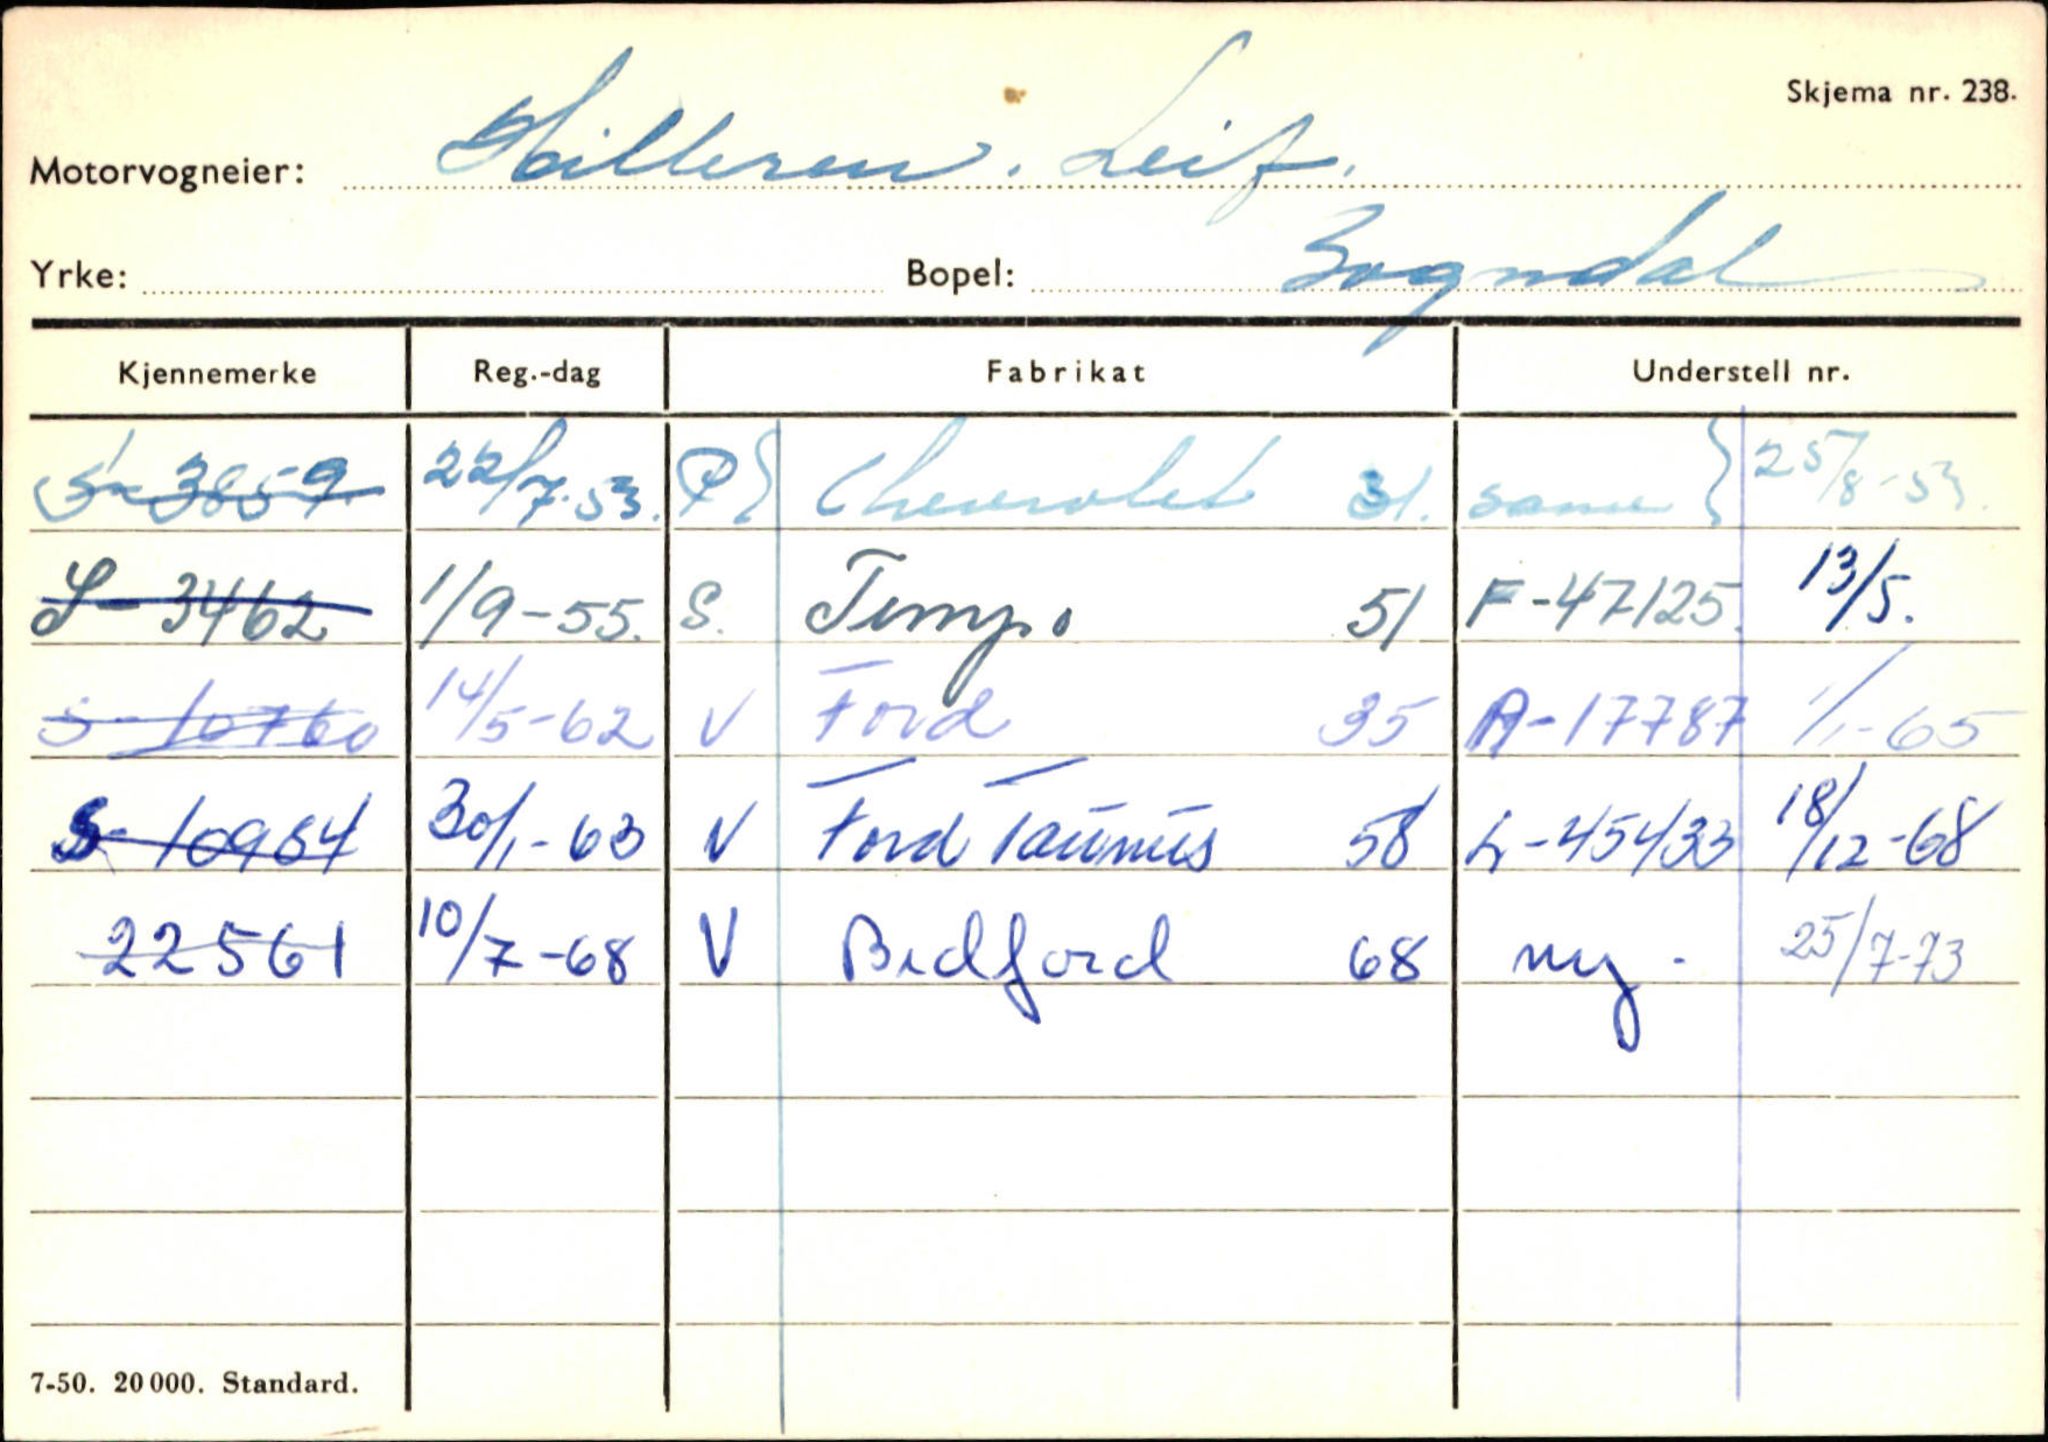 Skjema nr. 238.
Motorvogneier: Hilleren. Leif.
Yrke: Bopel: Sogndal
Kjennemerke Reg.-dag Fabrikat Understell nr.
S-3859 22/7-53. P} Chevrolet 31. same } 25/8-53.
S-3462 1/9-55. S. Tempo 51 F-47125. 13/5.
S-10760 14/5-62 V Ford 35 A-17787 1/1-65
S-10984 30/1-63 V Ford Taunus 58 L-45433 18/12-68
22561 10/7-68 V Bedford 68 ny. 25/7-73
7-50. 20 000. Standard.